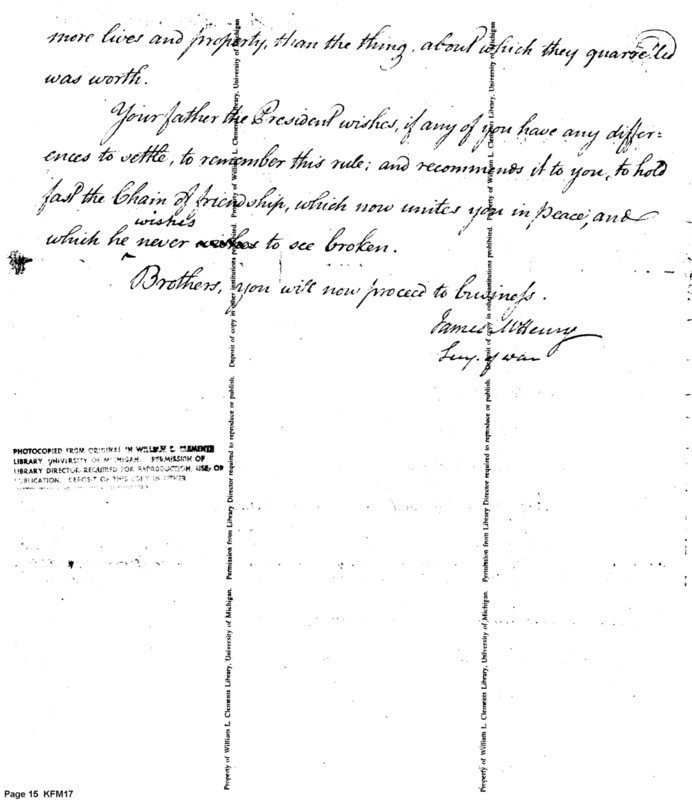 more lives and property, than the thing, about which they quarrelled
was worth.
Your father the President wishes, if any of you have any differ=
ences to settle, to remember this rule; and recommends it to you, to hold
fast the Chain of friendship, which now unites you in peace, and
wishes
which he never wishes to see broken.
Brothers, you will now proceed to business.
James McHenry
Secy. of war
PHOTOCOPIED FROM ORIGINAL IN WILLIAM L. CLEMENTS
LIBRARY UNIVERSITY OF MICHIGAN. PERMISSION OF
LIBRARY DIRECTOR REQUIRED FOR REPRODUCTION, USE, OR
PUBLICATION. DEPOSIT OF THIS COPY IN OTHER
Property of William L. Clements Library, University of Michigan. Permission from Library Director required to reproduce or publish. Deposit of copy in other institutions prohibited. Property of William L. Clements Library, University of Michigan
Property of William L. Clements Library, University of Michigan. Permission from Library Director required to reproduce or publish. Deposit of copy in other institutions prohibited. Property of William L. Clements Library, University of Michigan
Page 15 KFM17